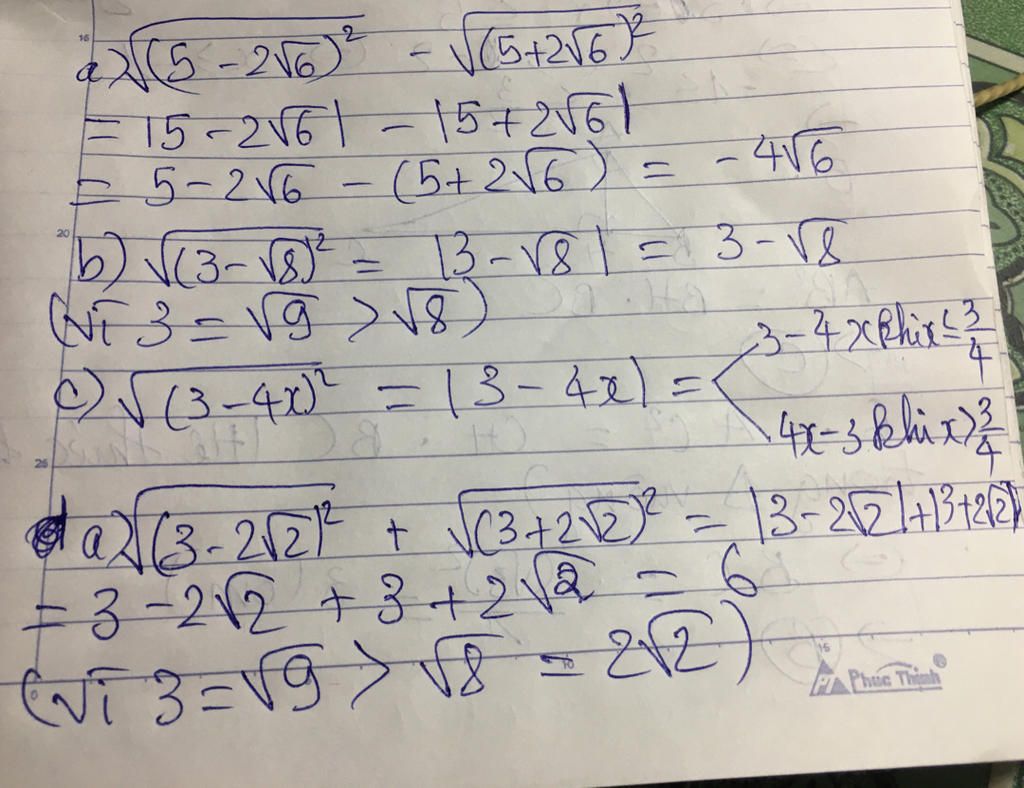 a) √(5 - 2√6)² - √(5+2√6)²
= |5 - 2√6| - |5 + 2√6|
= 5 - 2√6 - (5+2√6) = -4√6
b) √(3-√8)² = |3 - √8| = 3 - √8
(Vì 3 = √9 > √8)
c) √(3-4x)² = |3 - 4x| = 3 - 4x khi x ≤ 3/4
4x - 3 khi x > 3/4
a) √(3-2√2)² + √(3+2√2)² = |3-2√2| + |3+2√2|
= 3 - 2√2 + 3 + 2√2 = 6
(Vì 3 = √9 > √8 = 2√2)
16
20
25
0
10
15
Phúc Thịnh®